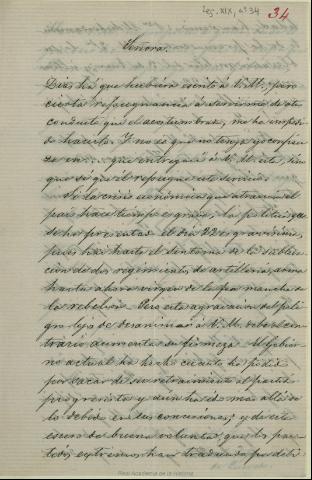 Leg. XIX, nº 34
34
Señora.
Dias há que hubiera escrito á V. M.; pero
cierta repugnancia á servirme de otro
conducto que el acostumbrado, me ha impedi-
do hacerlo. Y no es que no tenga yo confian-
za en ... que entregará á V. M. esta, sino
que sé que él repugna este servicio.
Si la crisis económica que atraviesa el
pais hace tiempo es grave, la politica, que
se ha presentado el dia 22 es gravisima,
pues hai hasta el sintoma de la subleva-
cion de dos regimientos de artilleria, arma
hasta ahora virgen de la fea mancha de
la rebelion. Pero esta agravacion del peli-
gro lejos de desanimar á V. M. debe al con-
trario aumentar su firmeza. El Gobier-
no actual ha hecho cuanto ha podido
por sacar de su retraimiento al partido
progresista y aun ha ido mas allá de
lo debido en sus concesiones; y de este
esceso de buena voluntad, que los par-
tidos extremos han traducido por debi-
Real Academia de la Historia